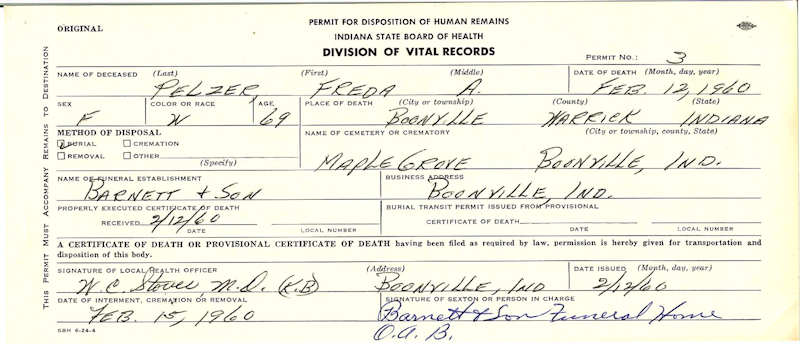 ORIGINAL
PERMIT FOR DISPOSITION OF HUMAN REMAINS
INDIANA STATE BOARD OF HEALTH
DIVISION OF VITAL RECORDS
PERMIT NO.: 3
THIS PERMIT MUST ACCOMPANY REMAINS TO DESTINATION
NAME OF DECEASED (Last) (First) (Middle) DATE OF DEATH (Month, day, year)
PELZER, FREDA A. FEB. 12, 1960
SEX COLOR OR RACE AGE PLACE OF DEATH (City or township) (County) (State)
F W 69 BOONVILLE WARRICK INDIANA
METHOD OF DISPOSAL NAME OF CEMETERY OR CREMATORY (City or township, county, State)
BURIAL CREMATION
REMOVAL OTHER
(Specify)
MAPLE GROVE BOONVILLE, IND.
NAME OF FUNERAL ESTABLISHMENT BUSINESS ADDRESS
BARNETT + SON BOONVILLE, IND.
PROPERLY EXECUTED CERTIFICATE OF DEATH BURIAL TRANSIT PERMIT ISSUED FROM PROVISIONAL
RECEIVED 2/12/60 CERTIFICATE OF DEATH
DATE LOCAL NUMBER DATE LOCAL NUMBER
A CERTIFICATE OF DEATH OR PROVISIONAL CERTIFICATE OF DEATH having been filed as required by law, permission is hereby given for transportation and
disposition of this body.
SIGNATURE OF LOCAL HEALTH OFFICER (Address) DATE ISSUED (Month, day, year)
W. C. Stover M.D. (K.B) BOONVILLE, IND 2/12/60
DATE OF INTERMENT, CREMATION OR REMOVAL SIGNATURE OF SEXTON OR PERSON IN CHARGE
FEB. 15, 1960 Barnett & Son Funeral Home
O.A.B.
SBH 6-24-4